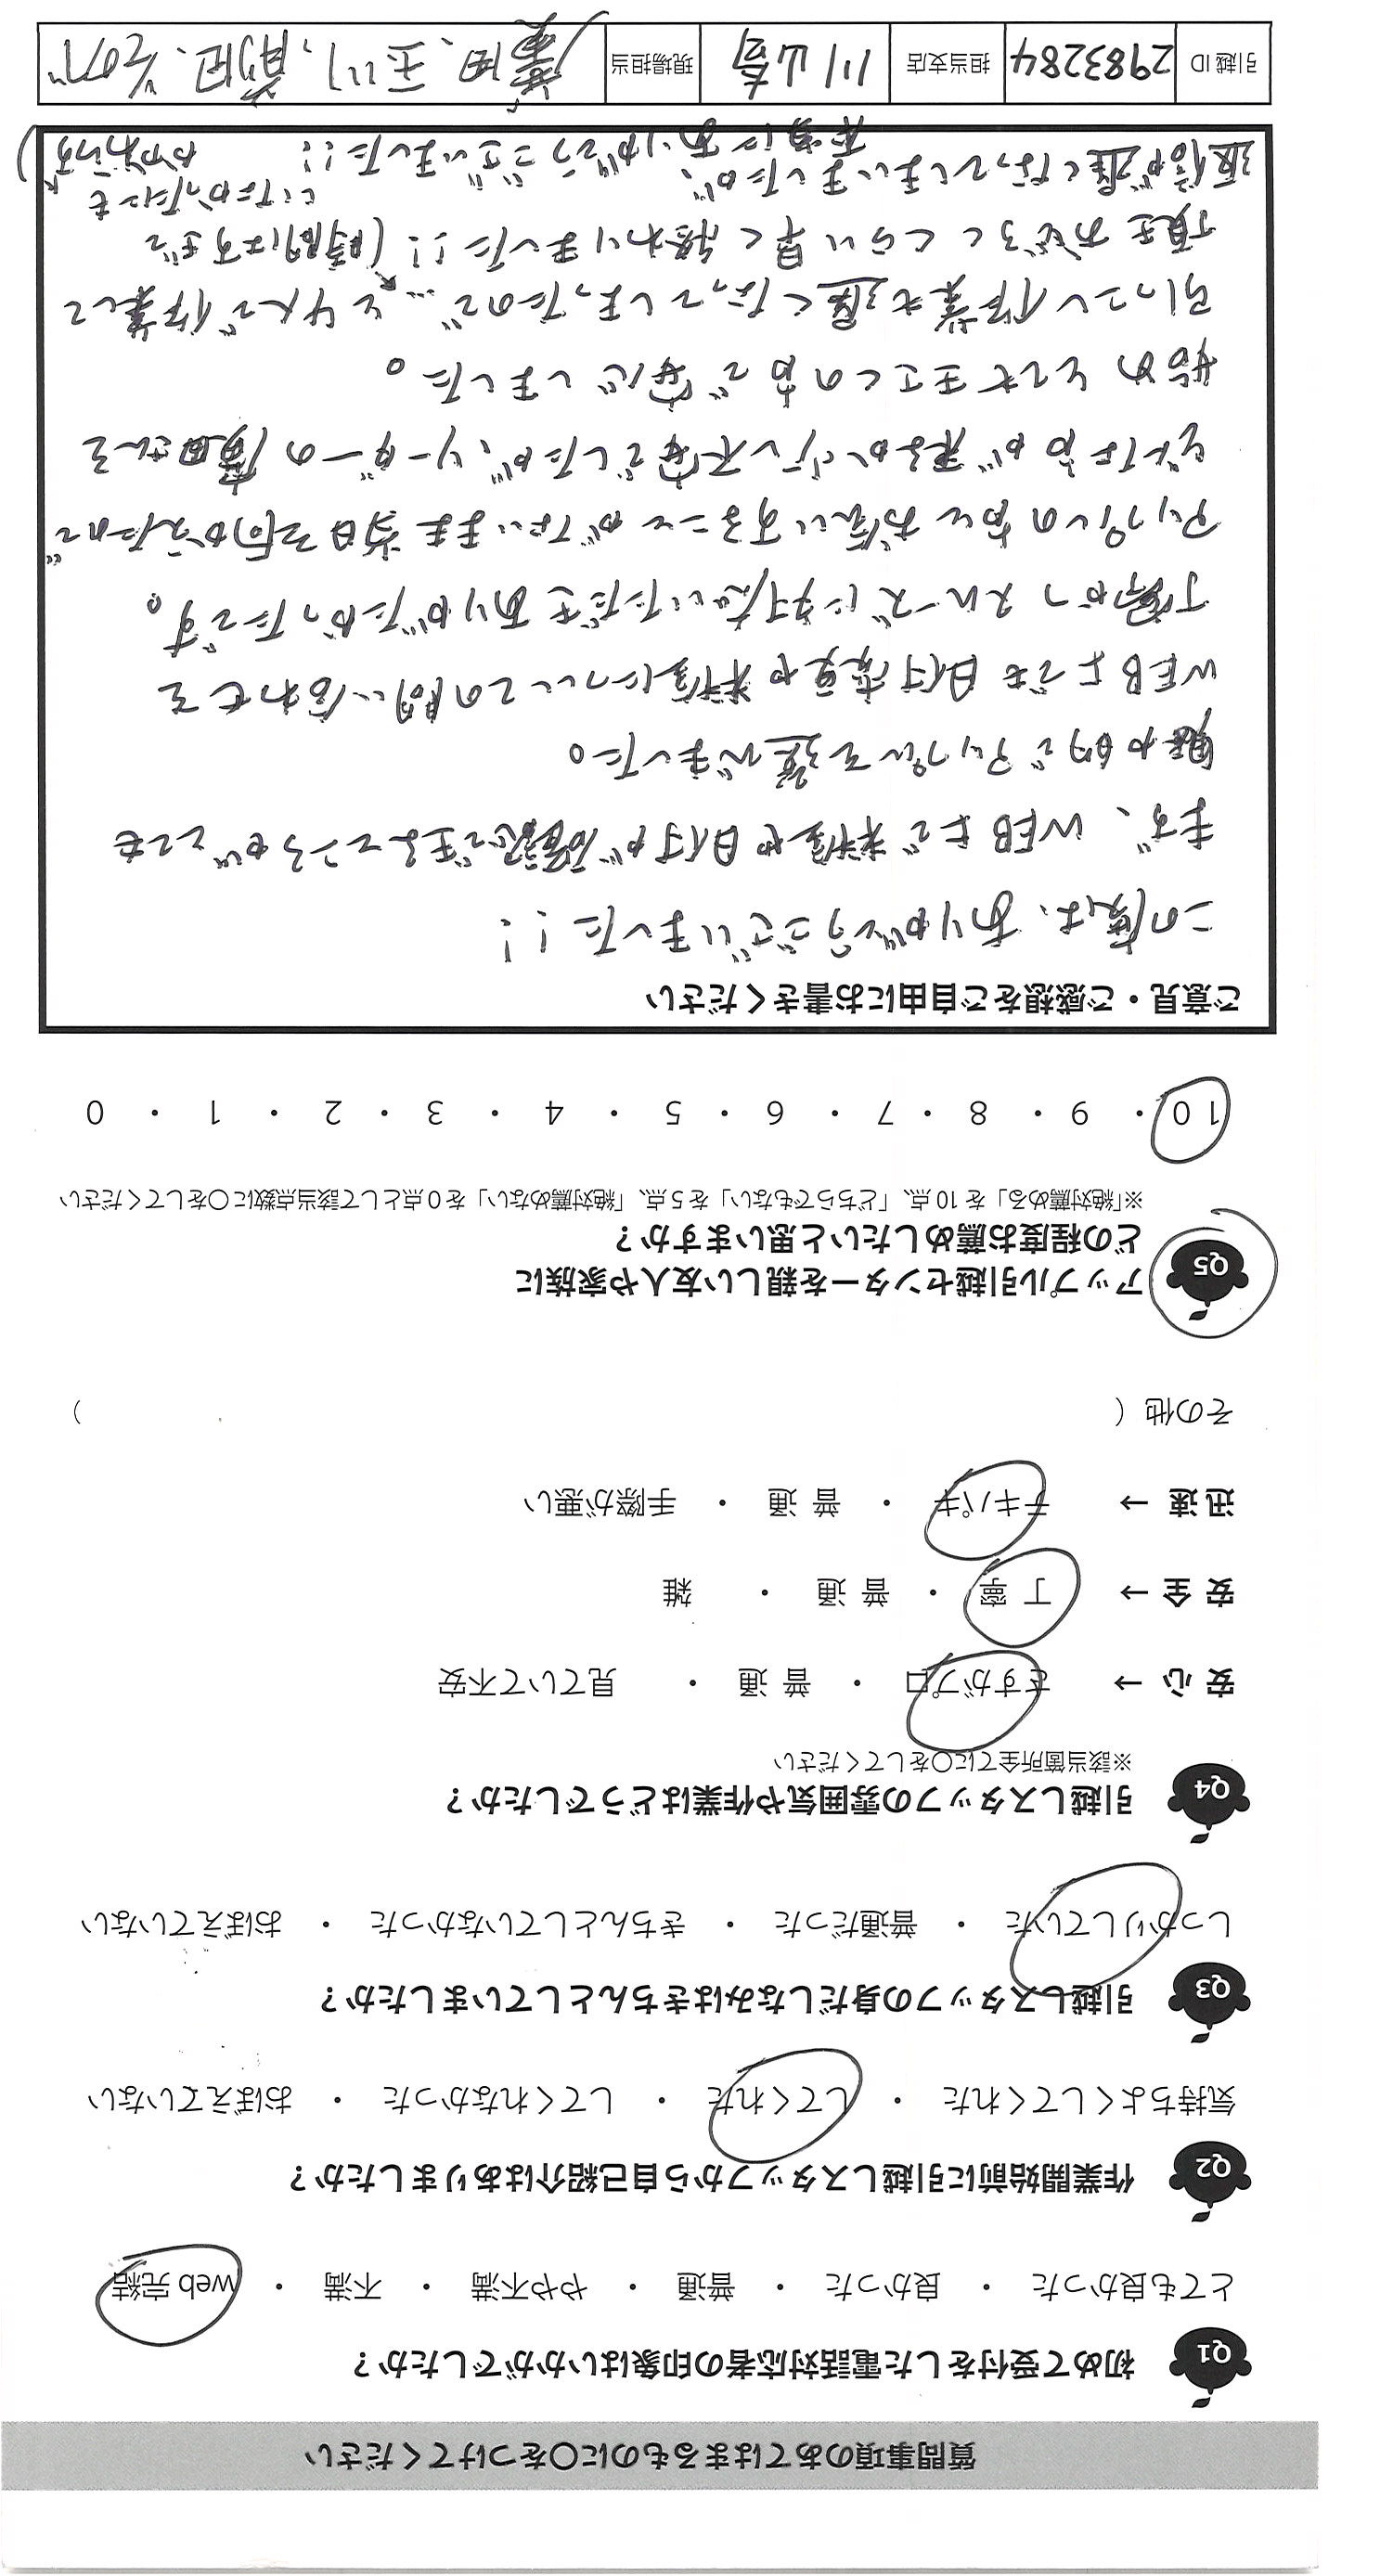 質問事項のあてはまるものに〇をつけてください
Q1 初めて受付をした電話対応者の印象はいかがでしたか？
とても良かった ・ 良かった ・ 普通 ・ やや不満 ・ 不満 ・ web 完結
Q2 作業開始前に引越しスタッフから自己紹介はありましたか？
気持ちよくしてくれた ・ してくれた ・ してくれなかった ・ おぼえていない
Q3 引越しスタッフの身だしなみはきちんとしていましたか？
しっかりしていた ・ 普通だった ・ きちんとしていなかった ・ おぼえていない
Q4 引越しスタッフの雰囲気や作業はどうでしたか？
※該当箇所全てに〇をしてください
安 心 → さすがプロ ・ 普 通 ・ 見ていて不安
安 全 → 丁 寧 ・ 普 通 ・ 雑
迅 速 → テキパキ ・ 普 通 ・ 手際が悪い
その他（ ）
Q5 アップル引越センターを親しい友人や家族に
どの程度お薦めしたいと思いますか？
※「絶対薦める」を 10 点、「どちらでもない」を 5 点、「絶対薦めない」を 0 点として該当点数に〇をしてください
10 ・ 9 ・ 8 ・ 7 ・ 6 ・ 5 ・ 4 ・ 3 ・ 2 ・ 1 ・ 0
ご意見・ご感想をご自由にお書きください
この度は、ありがとうございました！！
まず、WEB上で料金や日付が確認できるところがとても
魅力的でアップルを選びました。
WEB上でも日付変更や料金についての問い合わせを
丁寧かつスムーズに対応いただきありがたかったです。
アップルの方とお会いすることがないまま当日を向かえたので
どんな方が来るか少し不安でしたが、リーダーの廣田さんを
始めとても気さくの方で安心しました。
引っこし作業も遅くなってしまったので…と4人で作業して
頂きおどろくくらい早く終わりました！！（時間はすぎて
いなかったにも
かかわらず）
返信が遅くなってしまいましたが、本当にありがとうございました！！
引越 ID 2983284 担当支店 川崎 現場担当 廣田、玉川、前田、その